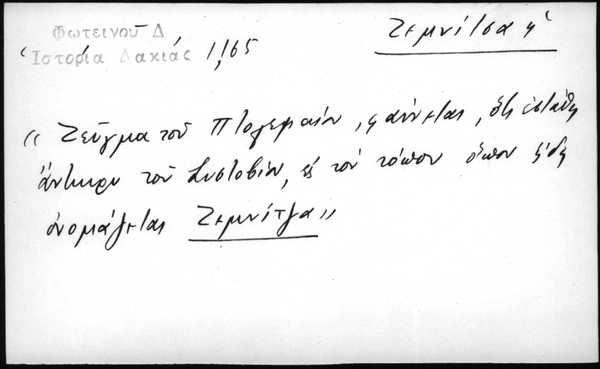 Φωτεινού Δ
Ἱστορία Δακιάς 1,165
Ζεμνίτσα ἡ
« Ζεῦγμα τοῦ Πτολεμαίου, φαίνεται, ὅτι ἐστάθη
ἄντικρυ τοῦ Συστοβίου, εἰς τὸν τόπον ὅπου ἤδη
ὀνομάζεται Ζεμνίτζα »